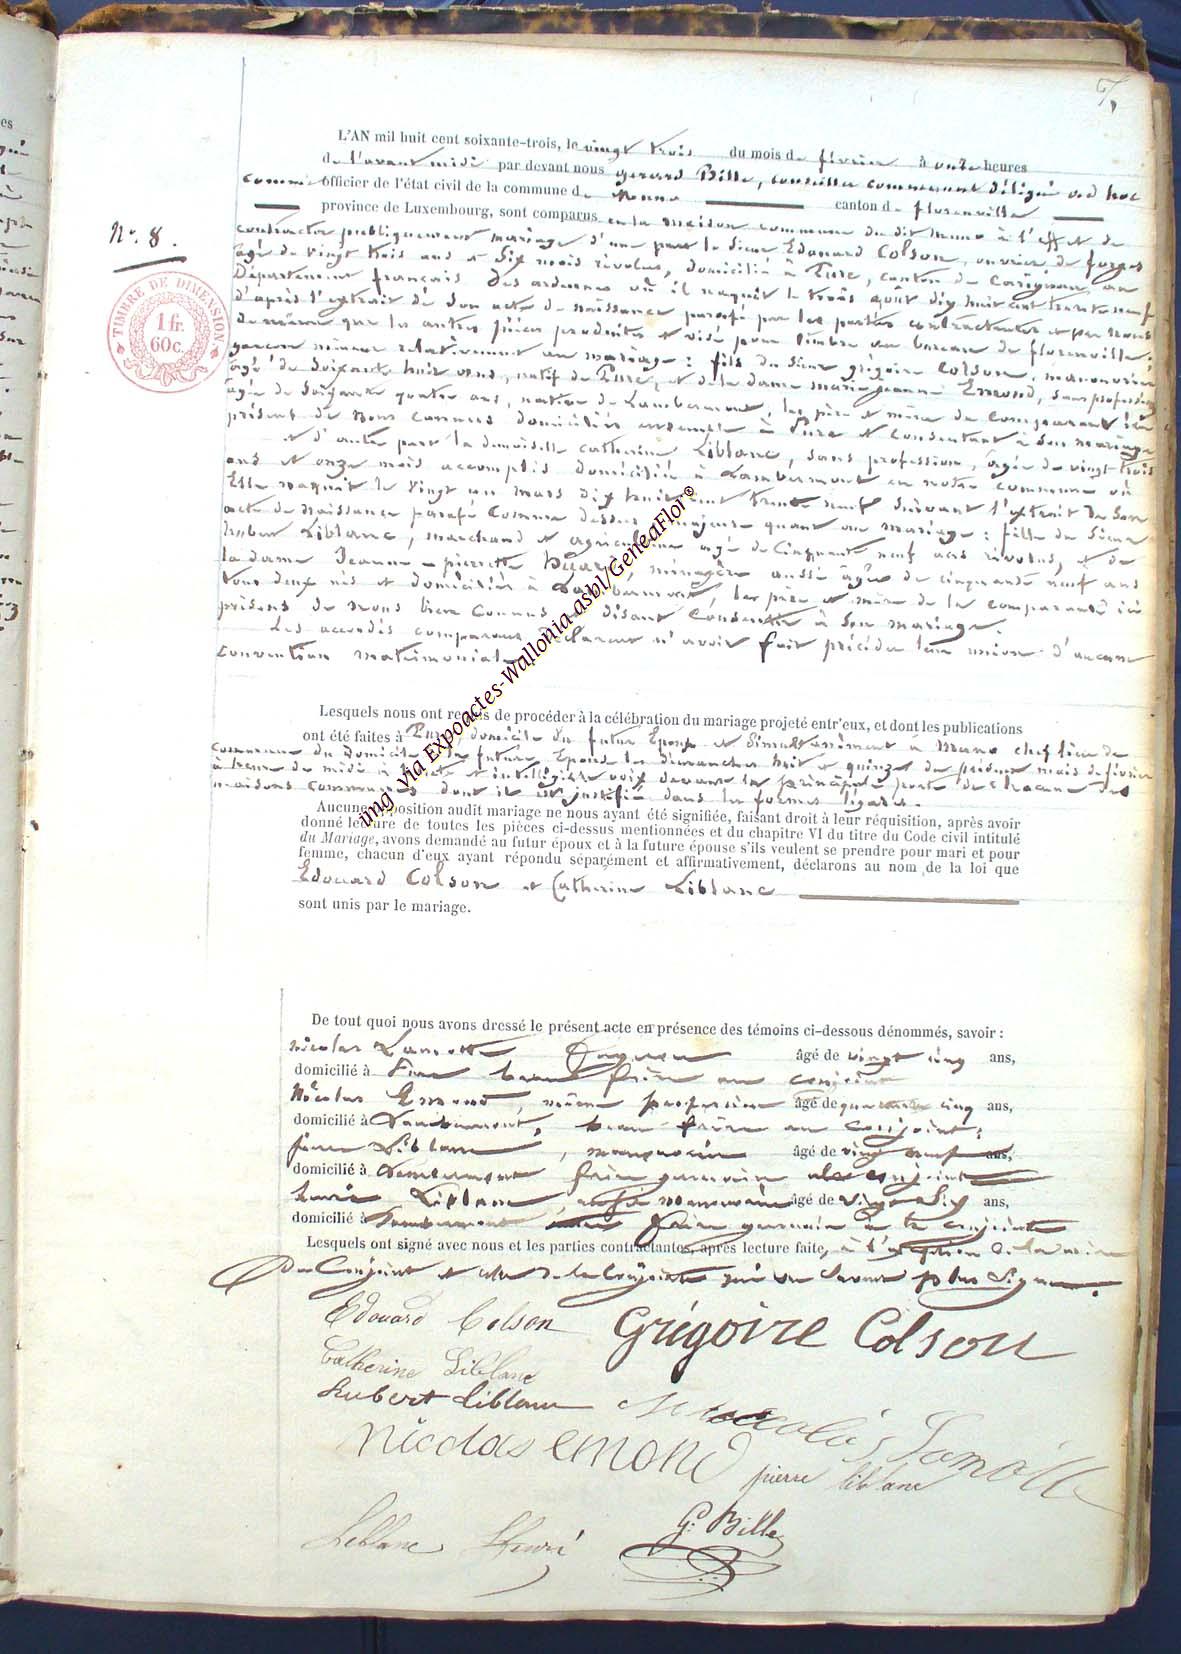 L'AN mil huit cent soixante-trois, le vingt trois du mois de février à onze heures
de l'avant midi par devant nous gerard Bille, conseiller communal délégué ad hoc
comme officier de l'état civil de la commune de Muno canton de florenville
province de Luxembourg, sont comparus en la maison commune du dit Muno à l'effet de
N° 8.
TIMBRE DE DIMENSION.
1 fr.
60 c.
contracter publiquement mariage d'une part le sieur Edouard Colson, ouvrier de forges
âgé de vingt trois ans et six mois révolus, domicilié à Pure, canton de Carignan au
Département français des ardennes où il naquit le trois août dix huit cent trente neuf
d'après l'extrait de son acte de naissance parafé par les parties contractantes et par nous
de même que les autres pièces produites et visé pour timbre au bureau de florenville;
garçon mineur relativement au mariage: fils du sieur grégoire Colson, manouvrier
âgé de soixante huit ans, natif de Pure, et de la dame marie jeanne Emond, sans profession
âgée de soixante quatre ans, native de Lambermont, les père et mère du comparant ici
présent de nous connus domiciliés ensemble à Pure et consentant à son mariage
et d'autre part la demoiselle catherine Liblanc, sans profession, âgée de vingt trois
ans et onze mois accomplis domiciliée à Lambermont en notre commune où
Elle naquit le vingt un mars dix huit cent trente neuf suivant l'extrait de son
acte de naissance parafé comme dessus majeure quant au mariage: fille du sieur
hubert Liblanc, marchand et agriculteur âgé de cinquante neuf ans révolus, et de
la dame Jeanne-pierrette, ménagère aussi âgée de cinquante neuf ans
tous deux nés et domiciliés à Lambermont, les père et mère de la comparante ici
présents de nous bien connus et disant consentir à son mariage.
Les accordés comparans déclarent n'avoir fait précéder leur union d'aucune
convention matrimoniale.
img via Expoactes-Wallonia-asbl/GeneaFlor©
Lesquels nous ont requis de procéder à la célébration du mariage projeté entr'eux, et dont les publications
ont été faites à Pure domicile du futur Epoux et simultanément à Muno chef lieu de
commune du domicile de la future Epouse les dimanches huit et quinze du présent mois de février
à heure de midi à haute et intelligible voix devant la principale porte de chacune des
maisons communes dont il est justifié dans les formes légales.
Aucune opposition audit mariage ne nous ayant été signifiée, faisant droit à leur réquisition, après avoir
donné lecture de toutes les pièces ci-dessus mentionnées et du chapitre VI du titre du Code civil intitulé
du Mariage, avons demandé au futur époux et à la future épouse s'ils veulent se prendre pour mari et pour
femme, chacun d'eux ayant répondu séparément et affirmativement, déclarons au nom de la loi que
Edouard Colson et Catherine Liblanc
sont unis par le mariage.
De tout quoi nous avons dressé le présent acte en présence des témoins ci-dessous dénommés, savoir:
nicolas Lamotte âgé de vingt cinq ans,
domicilié à Pure beau frère au conjoint
Nicolas Emond, même profession âgé de quarante cinq ans,
domicilié à Lambermont, beau-frère au conjoint;
pierre Liblanc, manouvrier âgé de vingt neuf ans,
domicilié à Lambermont frère germain de la conjointe
henri Liblanc, manouvrier âgé de vingt six ans,
domicilié à Lambermont frère germain à la conjointe
Lesquels ont signé avec nous et les parties contractantes, après lecture faite, à l'exception de la mère
du Conjoint et celle de la Conjointe
Edouard Colson Grégoire Colson
Catherine Liblanc
hubert liblanc
Nicolas Lamotte
nicolas emond
pierre liblanc
Leblanc Henri
G. Bille